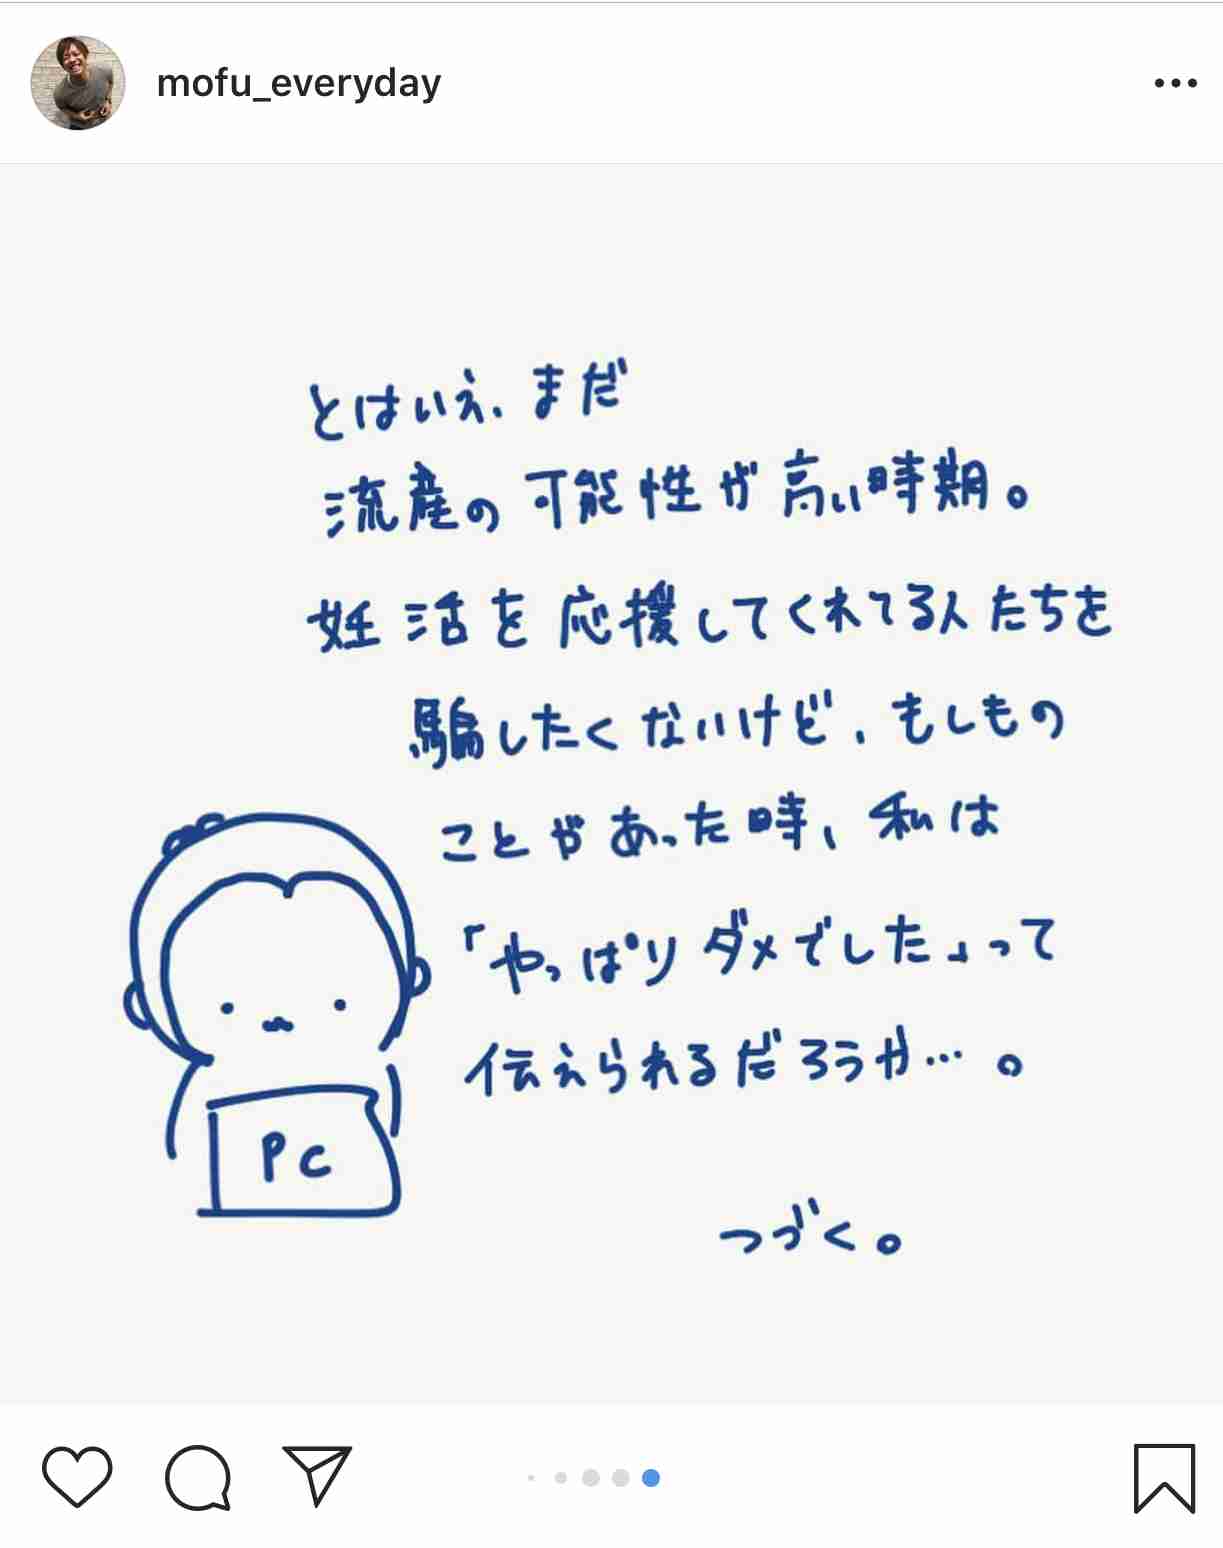 mofu_everyday
とはいえ、まだ
流産の可能性が高い時期。
妊活を応援してくれてる人たちを
騙したくないけど、もしもの
ことがあった時、私は
「やっぱりダメでした」って
伝えられるだろうか…。
PC
つづく。